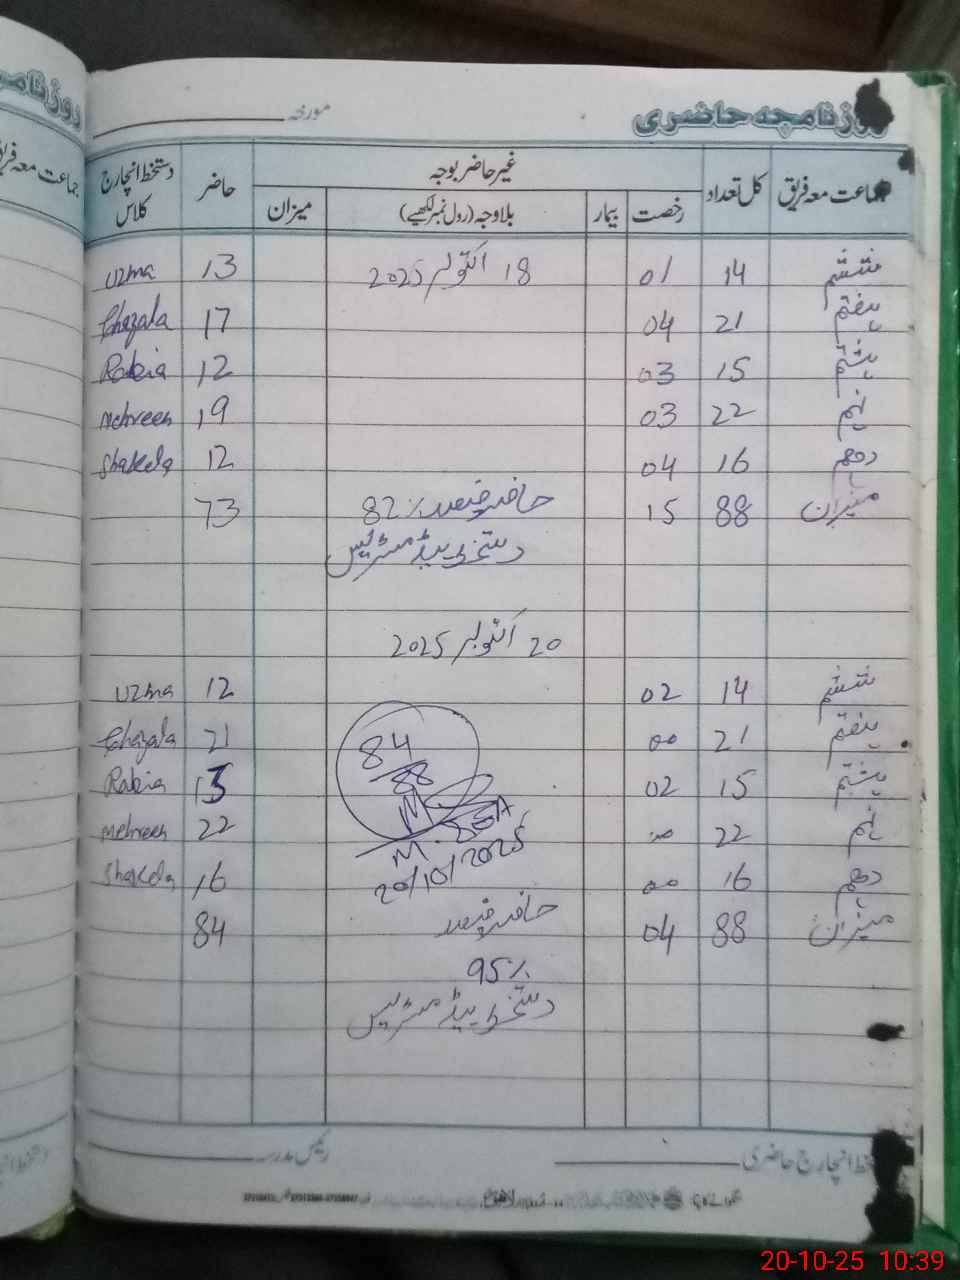 روزنامچہ حاضری مورخہ
جماعت معہ فریق کل تعداد غیر حاضر بوجہ حاضر دستخط انچارج کلاس
رخصت بیمار بلاوجہ (رول نمبر لکھیے) میزان
ششم 14 01 18 اکتوبر 2025 13 Uzma
ہفتم 21 04 17 Ghazala
ہشتم 15 03 12 Rabia
نہم 22 03 19 Mehreen
دہم 16 04 12 Shakela
میزان 88 15 حاضر فیصد 82٪ 73
دستخط ہیڈ مسٹریس
20 اکتوبر 2025
ششم 14 02 12 Uzma
ہفتم 21 00 21 Ghazala
84/88
ہشتم 15 02 13 Rabia
نہم 22 00 22 Mehreen
دہم 16 00 16 Shakela
20/10/2025
میزان 88 04 حاضر فیصد 84
95٪
دستخط ہیڈ مسٹریس
دستخط انچارج حاضری رئیس مدرسہ
20-10-25 10:39